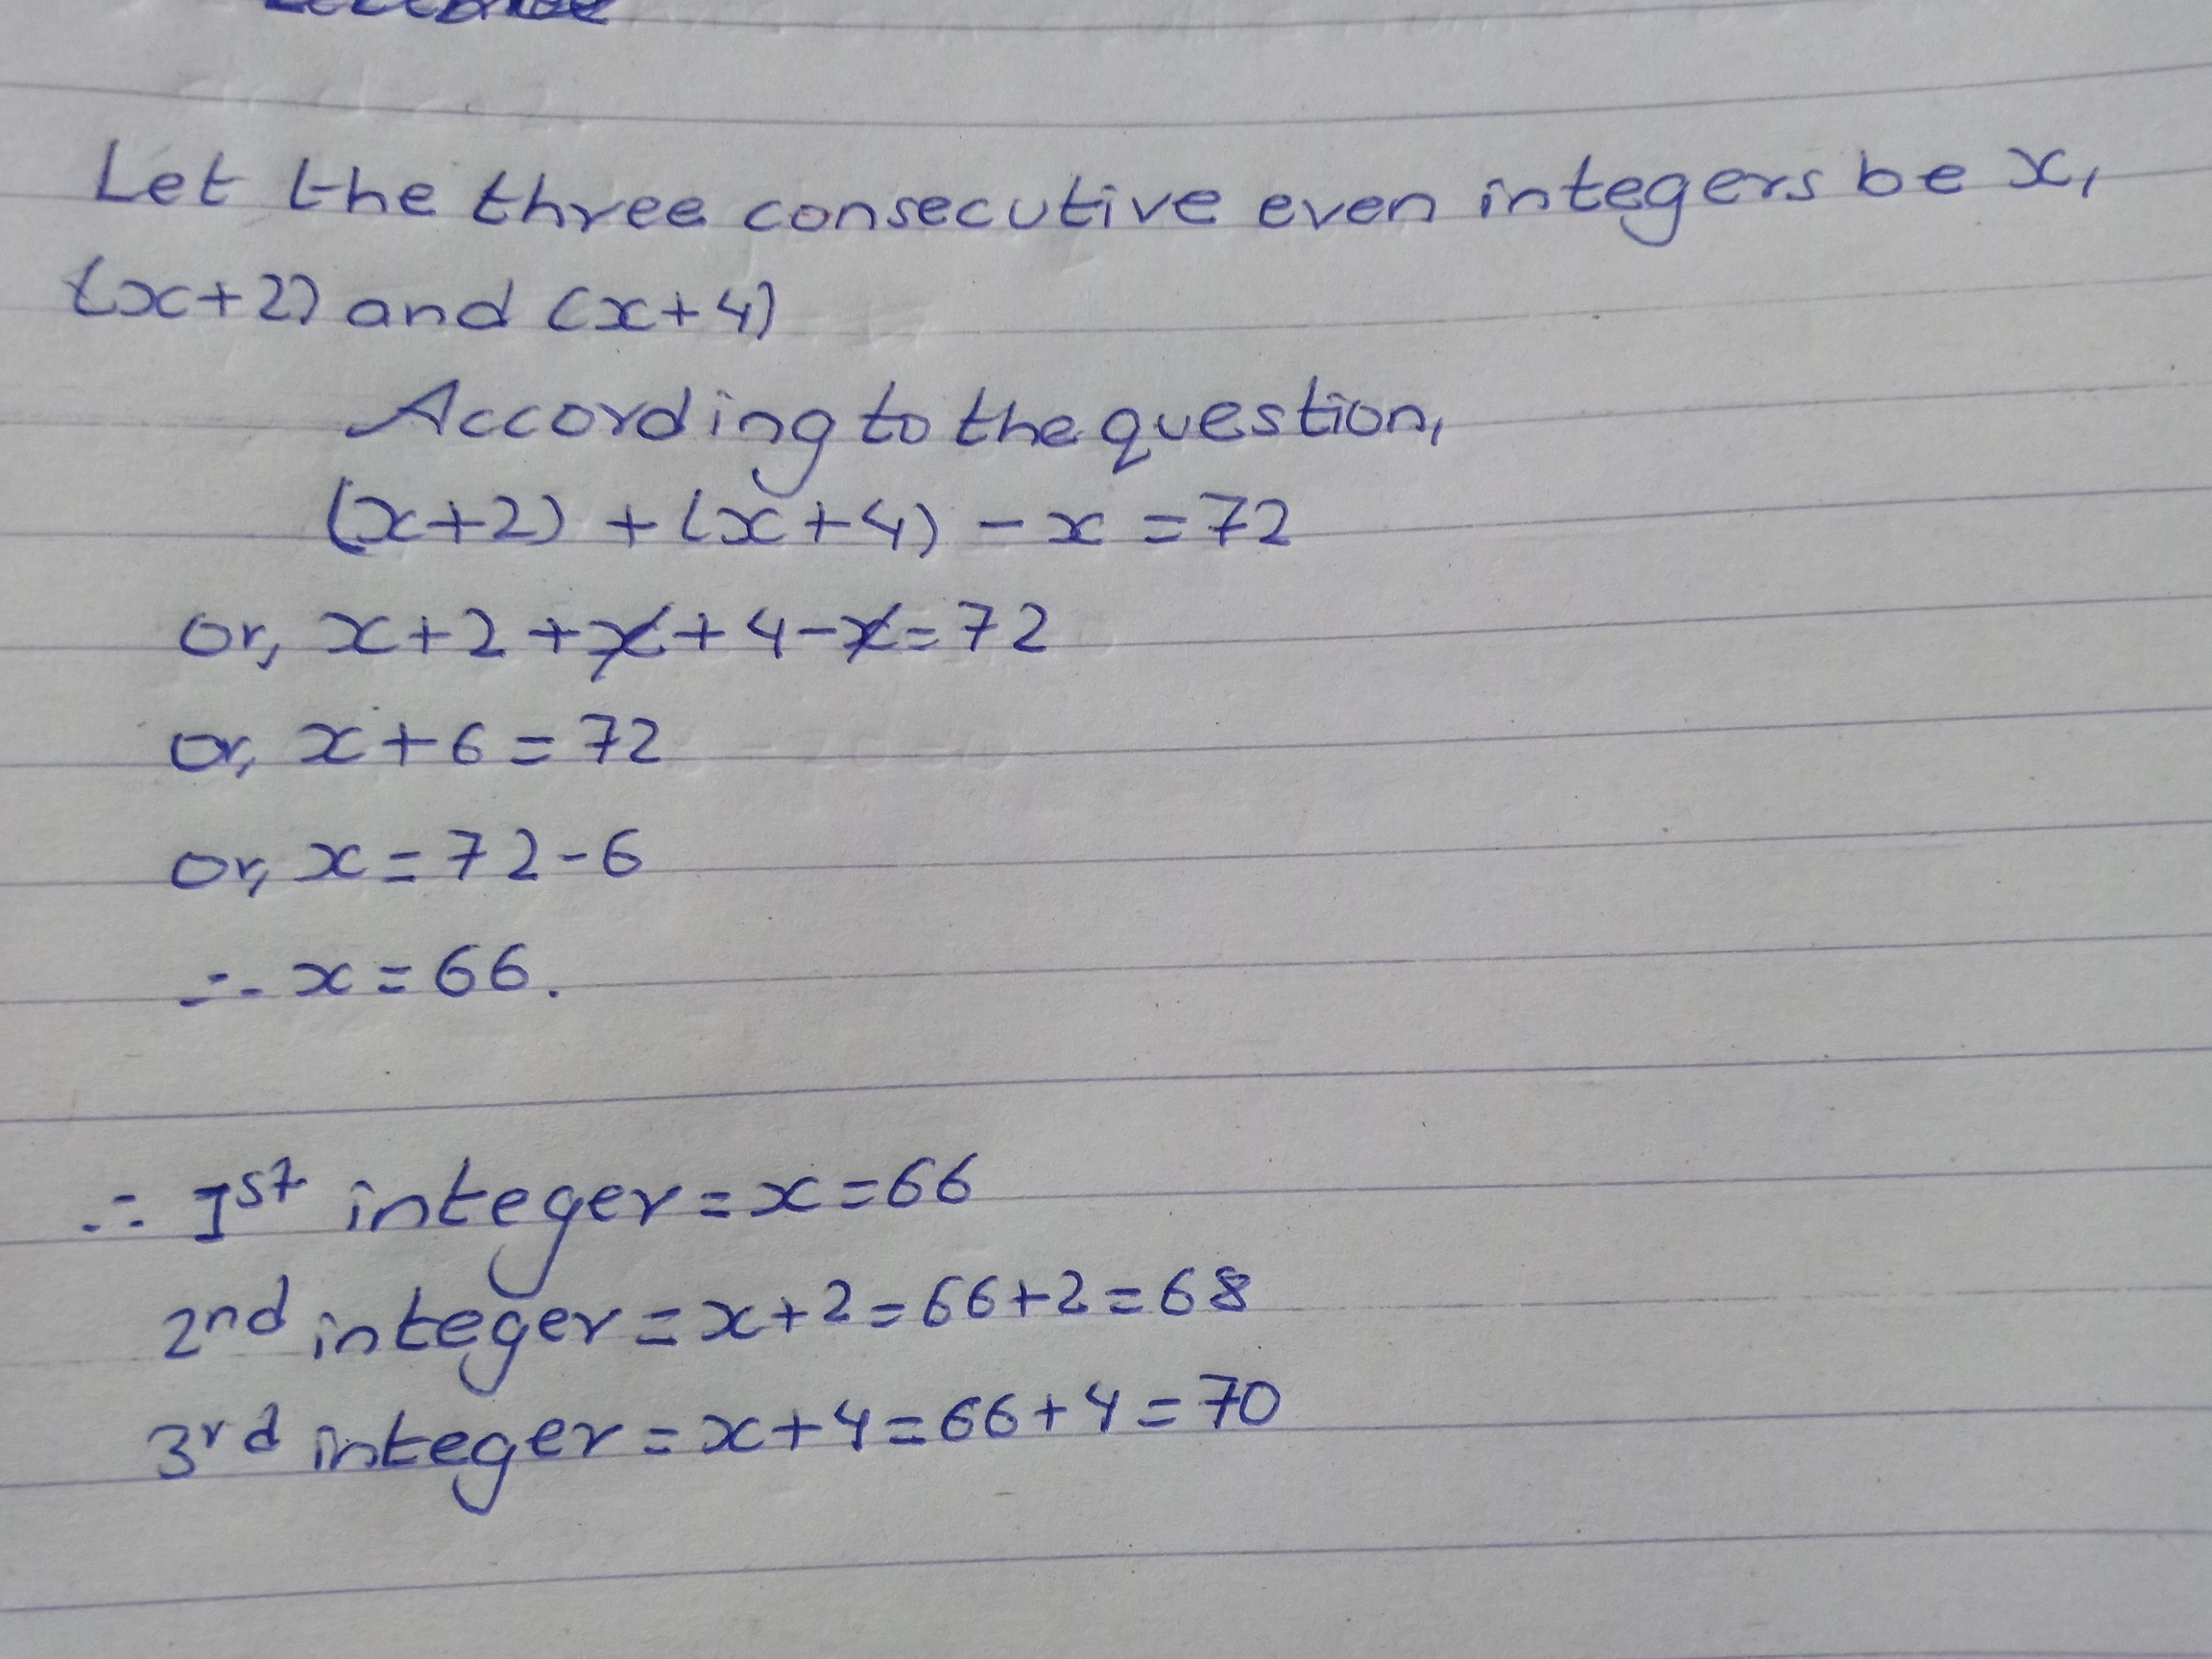 Let the three consecutive even integers be x,
(x+2) and (x+4)
According to the question,
(x+2) + (x+4) - x = 72
or, x+2+x+4-x=72
or, x+6=72
or, x=72-6
∴ x=66.
∴ 1st integer=x=66
2nd integer=x+2=66+2=68
3rd integer=x+4=66+4=70